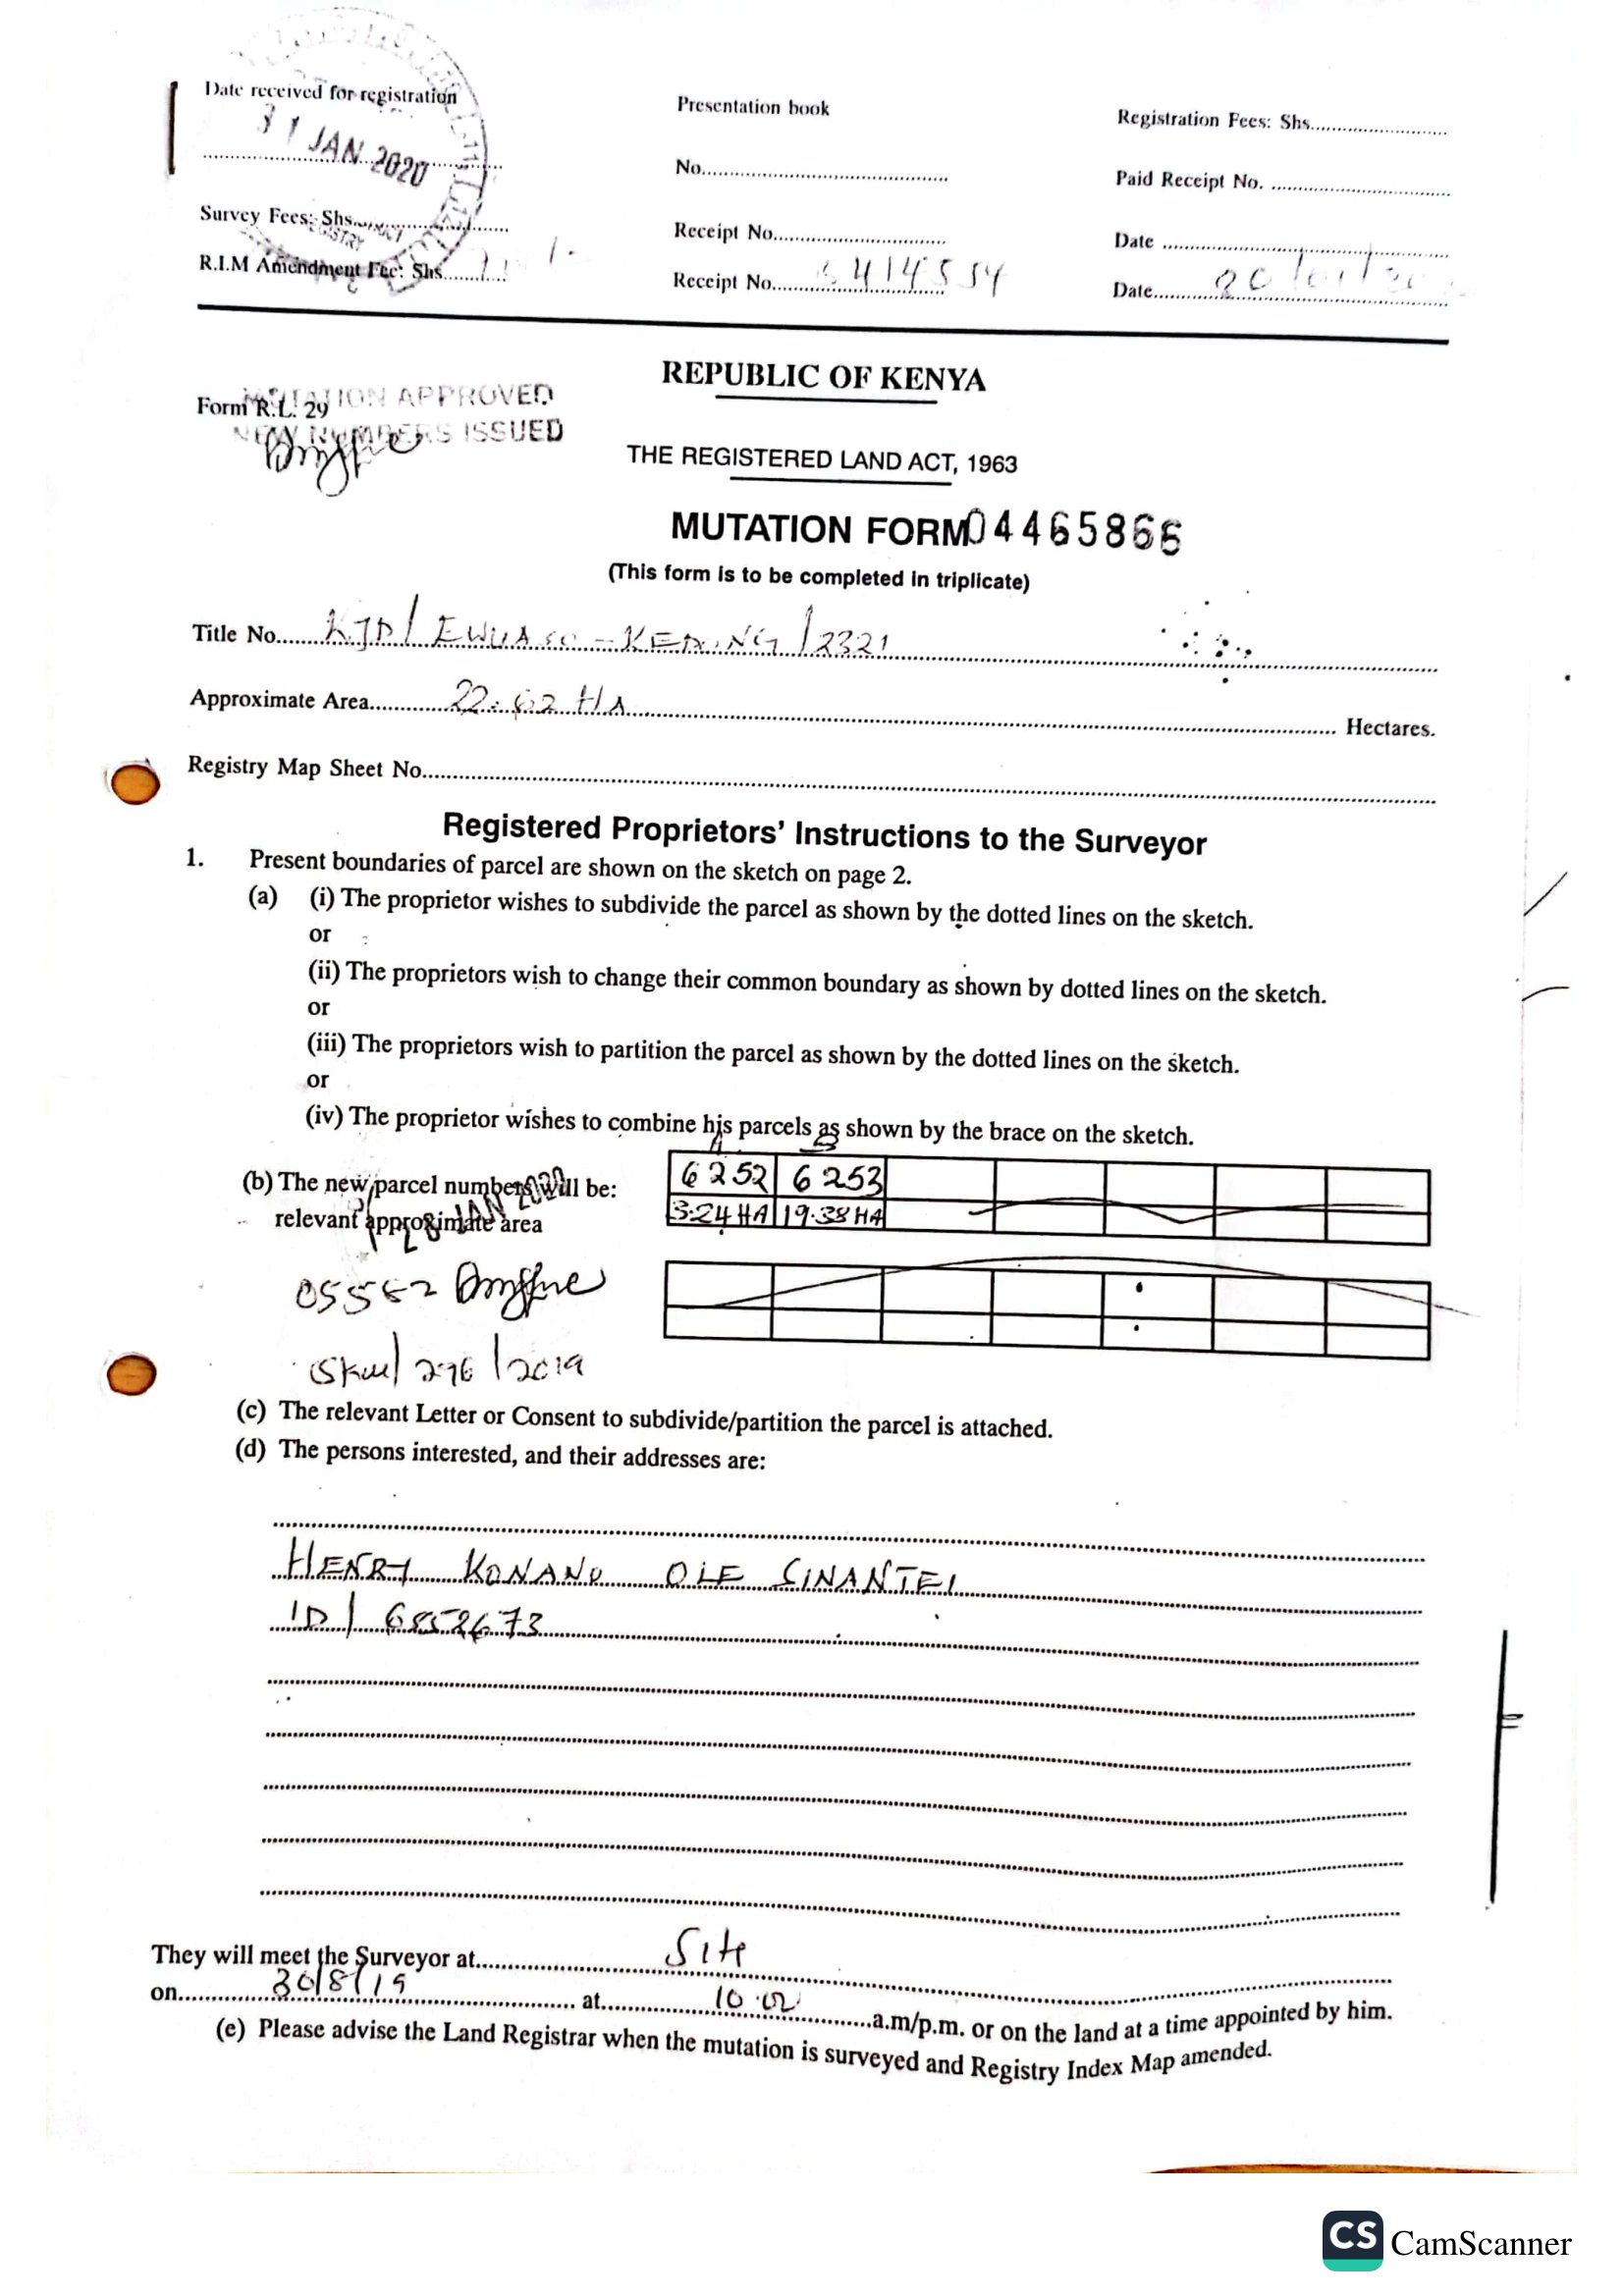 Date received for registration
31 JAN 2020
Presentation book
Registration Fees: Shs
No
Paid Receipt No.
Survey Fees: Shs
Receipt No
Date
R.I.M Amendment Fee: Shs
Receipt No 414554
Date 20/01/20
REPUBLIC OF KENYA
Form R.L. 29
MUTATION APPROVED
NEW NUMBERS ISSUED
THE REGISTERED LAND ACT, 1963
MUTATION FORM 04465866
(This form is to be completed in triplicate)
Title No. KJD/EWUASO-KEDONG/2321
Approximate Area 22.62 HA Hectares.
Registry Map Sheet No
Registered Proprietors' Instructions to the Surveyor
1. Present boundaries of parcel are shown on the sketch on page 2.
(a) (i) The proprietor wishes to subdivide the parcel as shown by the dotted lines on the sketch.
or
(ii) The proprietors wish to change their common boundary as shown by dotted lines on the sketch.
or
(iii) The proprietors wish to partition the parcel as shown by the dotted lines on the sketch.
or
(iv) The proprietor wishes to combine his parcels as shown by the brace on the sketch.
(b) The new parcel numbers will be: 6252 6253
relevant approximate area 3.24HA 19.38HA
JAN 2020
/296/2019
(c) The relevant Letter or Consent to subdivide/partition the parcel is attached.
(d) The persons interested, and their addresses are:
HENRY KONANO OLE SINANTEI
ID/ 6852673
They will meet the Surveyor at Site
on 30/8/19 at 10.00 a.m/p.m. or on the land at a time appointed by him.
(e) Please advise the Land Registrar when the mutation is surveyed and Registry Index Map amended.
CS CamScanner